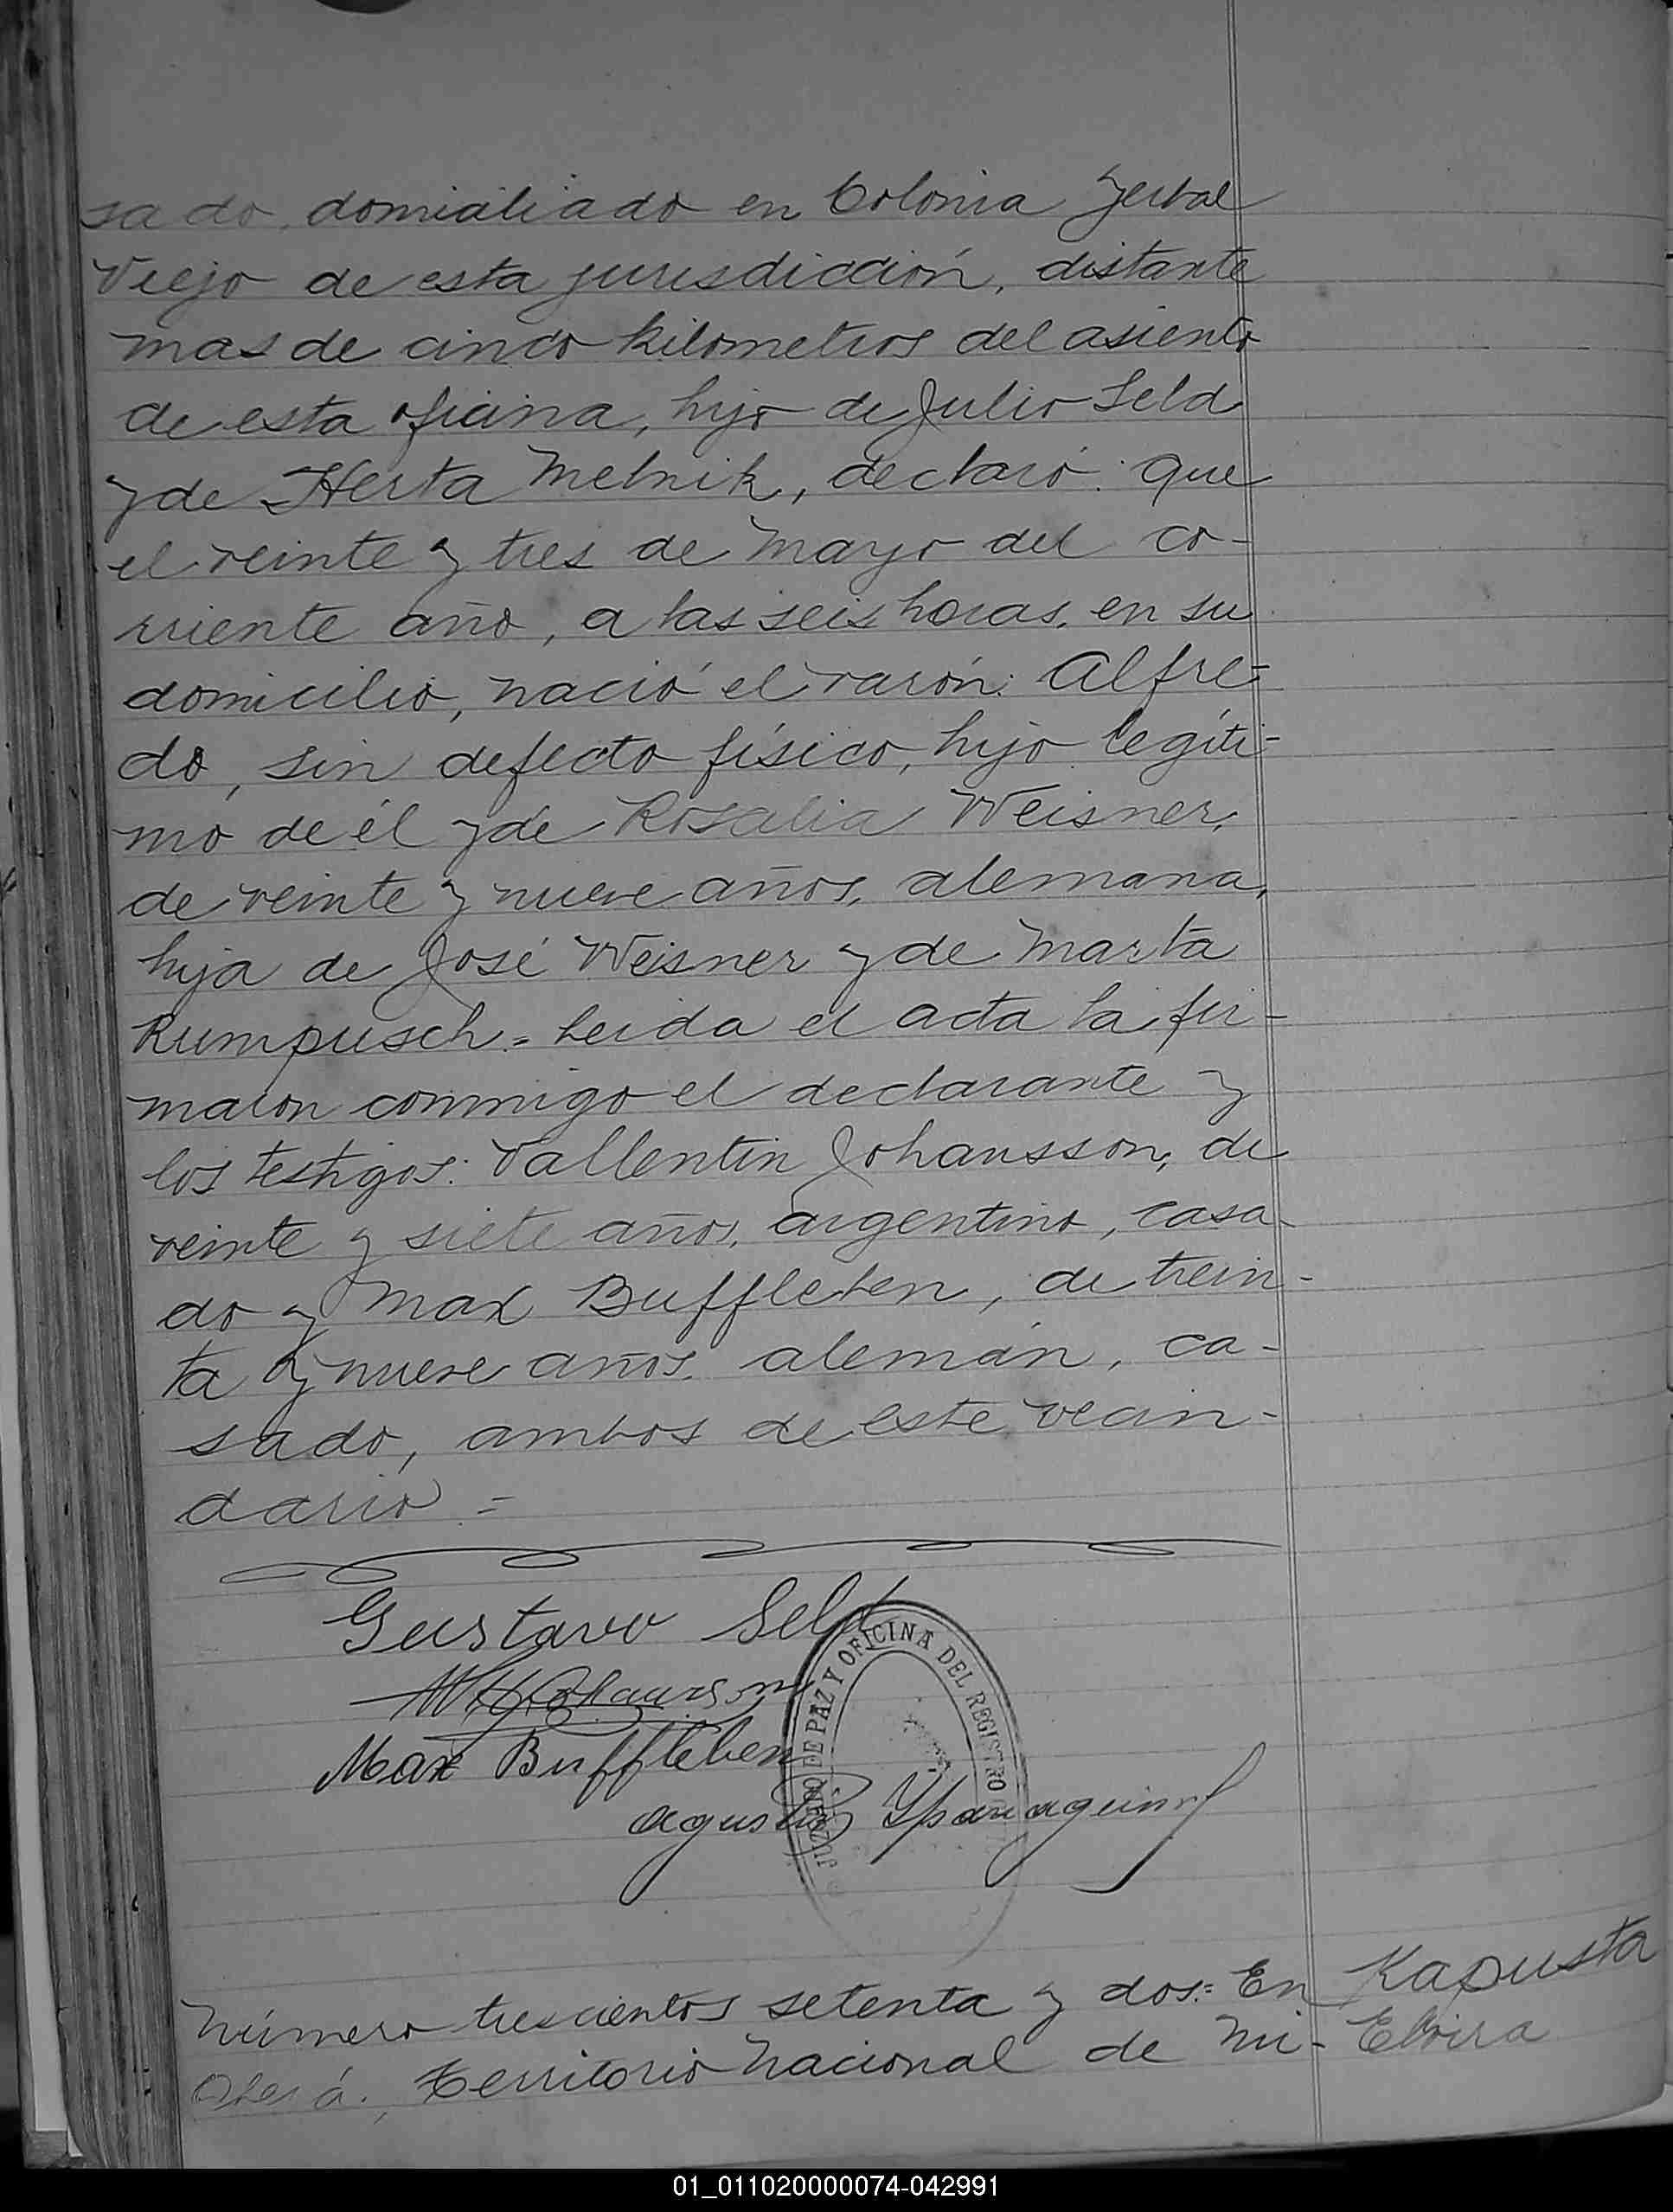 sado, domiciliado en Colonia Yerbal
Viejo de esta jurisdicción, distante
mas de cinco kilometros del asiento
de esta oficina, hijo de Julio Seld
y de Herta Melnik, declaró: que
el veinte y tres de Mayo del co-
rriente año, a las seis horas, en su
domicilio, nació el varón: Alfre-
do, sin defecto físico, hijo legíti-
mo de él y de Rosalia Weisner,
de veinte y nueve años, alemana,
hija de José Weisner y de Marta
Rumpusch.= Leida el acta la fir-
maron conmigo el declarante y
los testigos: Vallentin Johansson, de
veinte y siete años, argentino, casa-
do y Max Buffleben, de trein-
ta y nueve años, alemán, ca-
sado, ambos de este vecin-
dario.=
Gustavo Seld
Johansson
Max Buffleben
JUZGADO DE PAZ Y OFICINA DEL REGISTRO
Agustin
Número trescientos setenta y dos:= En
Oberá, Territorio Nacional de Mi-
Kapusta
Elvira
01_011020000074-042991